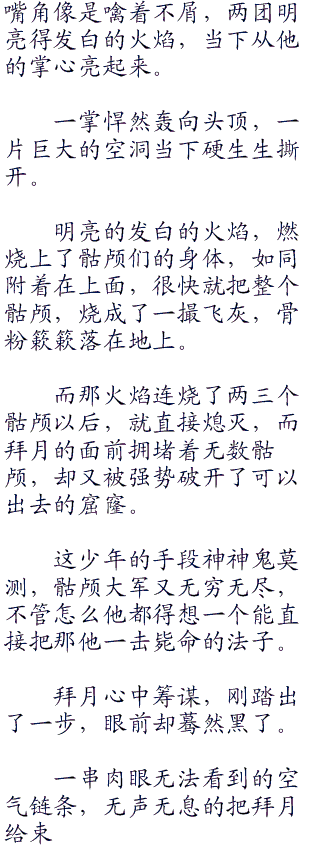 嘴角像是噙着不屑，两团明
亮得发白的火焰，当下从他
的掌心亮起来。
一掌悍然轰向头顶，一
片巨大的空洞当下硬生生撕
开。
明亮的发白的火焰，燃
烧上了骷颅们的身体，如同
附着在上面，很快就把整个
骷颅，烧成了一撮飞灰，骨
粉簌簌落在地上。
而那火焰连烧了两三个
骷颅以后，就直接熄灭，而
拜月的面前拥堵着无数骷
颅，却又被强势破开了可以
出去的窟窿。
这少年的手段神神鬼莫
测，骷颅大军又无穷无尽，
不管怎么他都得想一个能直
接把那他一击毙命的法子。
拜月心中筹谋，刚踏出
了一步，眼前却蓦然黑了。
一串肉眼无法看到的空
气链条，无声无息的把拜月
给束